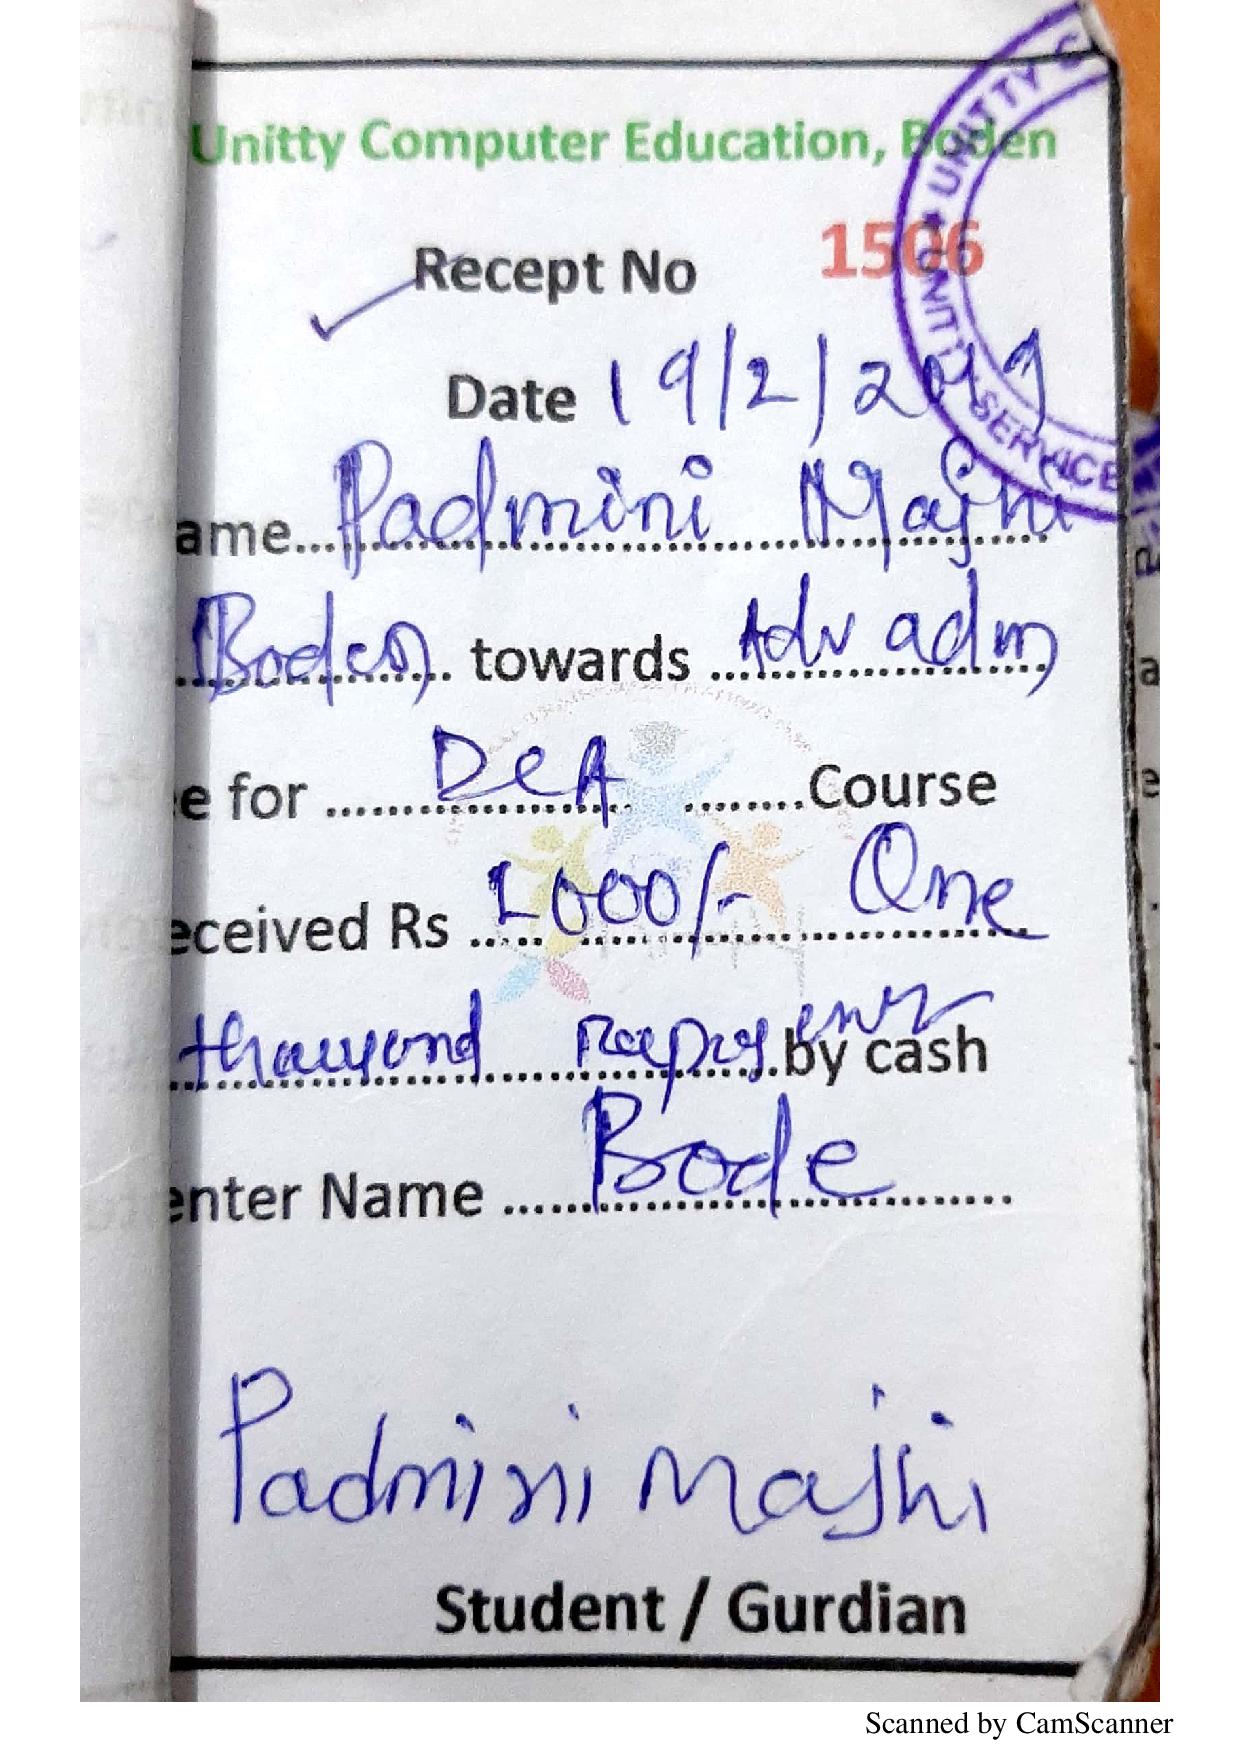 Unitty Computer Education, Boden
Recept No 1506
Date 19/2/2019
ame... Padmini Majhi
Boden towards Adv adm
e for DCA Course
eceived Rs 1000/- One
by cash
enter Name Bode
Padmini Majhi
Student / Gurdian
UNITTY
SERVICE
Scanned by CamScanner